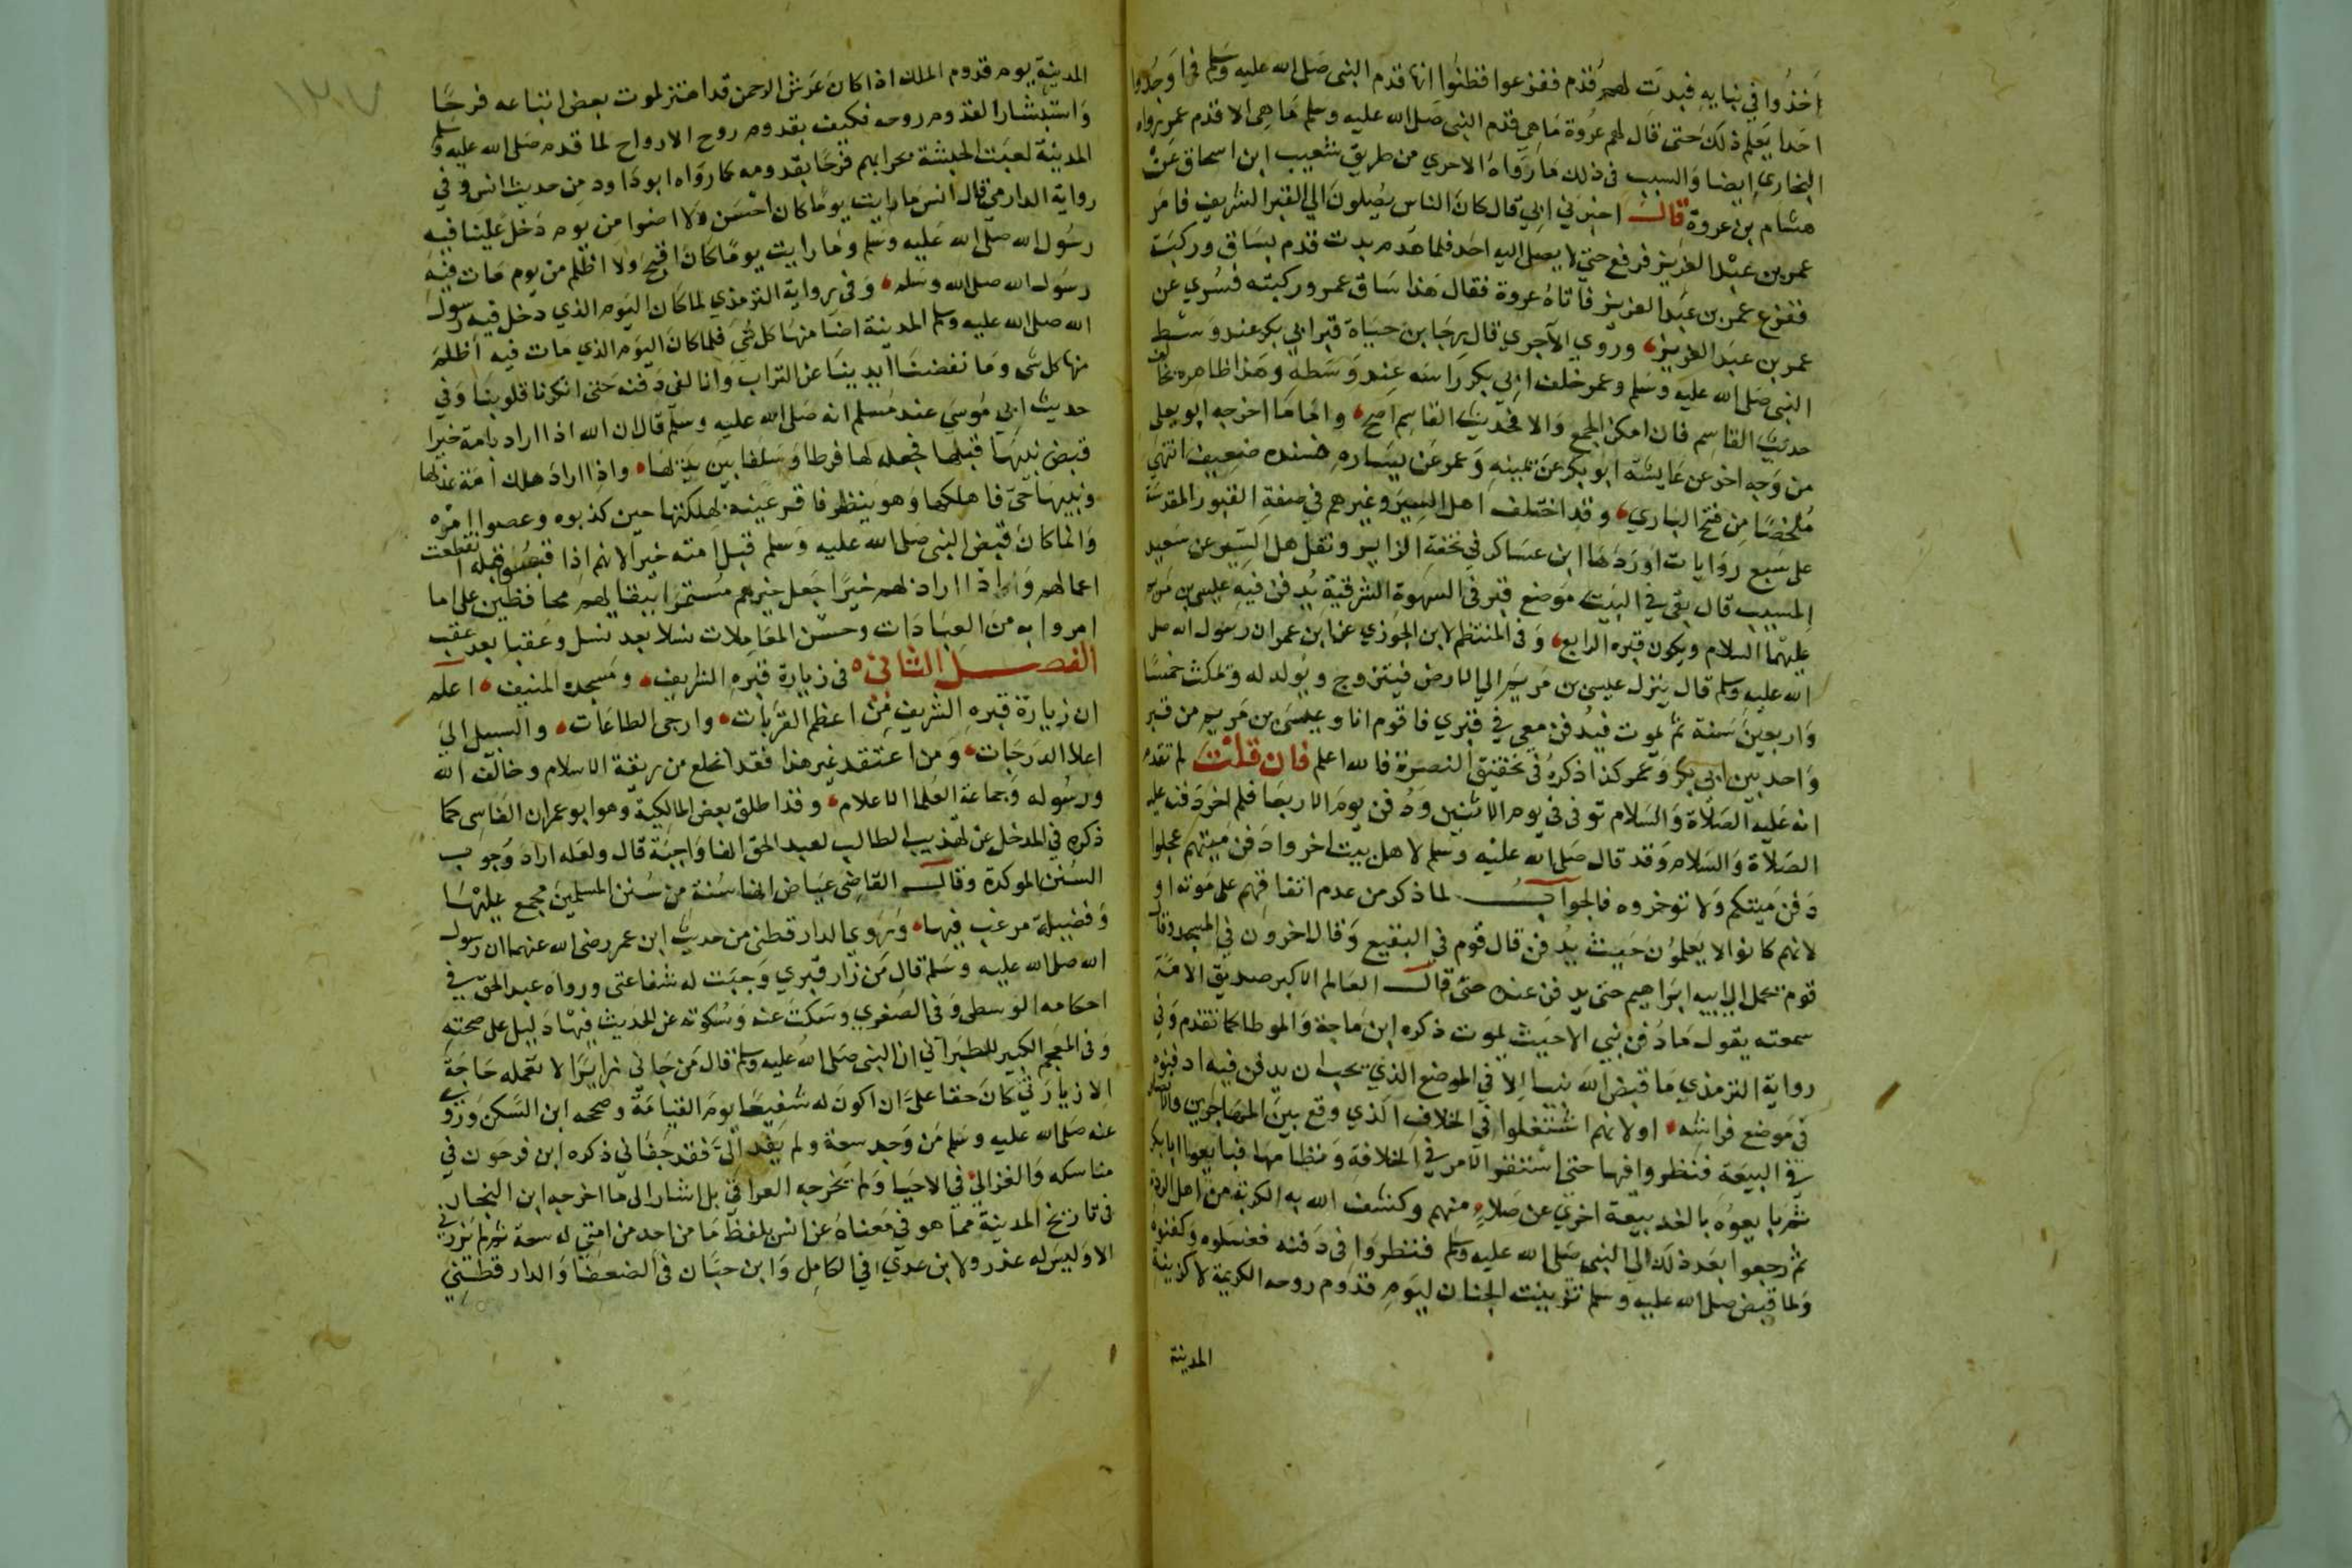 اخذوا في بنايه فبدت لهم قدم ففزعوا فظنوا انها قدم النبى صلى الله عليه وسلم فما وجدوا
احدا يعلم ذلك حتى قال لهم عروة ما هي قدم النبى صلى الله عليه وسلم ما هى الا قدم عمر رواه
البخاري ايضا والسبب فى ذلك ما رواه الاجري من طريق شعيب ابن اسحاق عن
هشام بن عروة قال اخبرني ابي قال كان الناس يصلون الي القبر الشريف فامر
عمر بن عبد العزيز فرفع حتي لا يصل اليه احد فلما هدم بدت قدم بساق وركبة
ففزع عمر بن عبد العزيز فاتاه عروة فقال هذا ساق عمر وركبته فسري عن
عمر بن عبد العزيز وروي الآجري قال رجا بن حياة قبر ابي بكر عند وسط
النبى صلى الله عليه وسلم وعمر خلف ابي بكر راسه عند وسطه وهذا ظاهره يخالف
حديث القاسم فان امكن الجمع والا فحديث القاسم اصح واما ما اخرجه ابو يعلى
من وجه اخر عن عايشة ابو بكر عن يمينه وعمر عن يساره فسنده ضعيف انتهى
ملخصا من فتح الباري وقد اختلف اهل السير وغيرهم في صفة القبور المقدسة
على سبع روايات اوردها ابن عساكر في تحفة الزاير ونقل اهل السير عن سعيد
بن المسيب قال بقي في البيت موضع قبر فى السهوة الشرقية يدفن فيه عيسى بن مريم
عليهما السلام ويكون قبره الرابع وفى المنتظم لابن الجوزي عن ابن عمر ان رسول الله صلى
الله عليه وسلم قال ينزل عيسى بن مريم الي الارض فيتزوج ويولد له ويمكث خمسا
واربعين سنة ثم يموت فيدفن معي في قبري فاقوم انا وعيسى بن مريم من قبر
واحد بين ابي بكر وعمر كذا ذكره في تحقيق النصرة فالله اعلم فان قلت لم تقدم
انه عليه الصلاة والسلام توفى في يوم الاثنين ودفن يوم الاربعا فلم اخر دفنه عليه
الصلاة والسلام وقد قال صلى الله عليه وسلم لاهل بيت اخروا دفن ميتهم عجلوا
دفن ميتكم ولا توخروه فالجواب لما ذكر من عدم اتفاقهم على موته او
لانهم كانوا لا يعلمون حيث يدفن قال قوم في البقيع وقال اخرون في المسجد وقال
قوم يحمل الي ابيه ابراهيم حتى يدفن عنده حتى قال العالم الاكبر صديق الامة
سمعته يقول ما دفن نبي الا حيث يموت ذكره ابن ماجة والموطا كما تقدم وفي
رواية الترمذي ما قبض الله نبيا الا في الموضع الذي يحب ان يدفن فيه ادفنوه
في موضع فراشه او لانهم اشتغلوا في الخلاف الذي وقع بين المهاجرين والانصار
في البيعة فنظروا فيها حتى استقر الامر في الخلافة ونظامها فبايعوا ابا بكر
ثم بايعوه بالغد بيعة اخري عن ملاء منهم وكشف الله به الكربة من اهل الردة
ثم رجعوا بعد ذلك الي النبى صلى الله عليه وسلم فنظروا فى دفنه فغسلوه وكفنوه
ولما قبض صلى الله عليه وسلم تزينت الجنان ليوم قدوم روحه الكريمة لا كزينة
المدينة
المدينة يوم قدوم الملك اذا كان عرش الرحمن قد اهتز لموت بعض اتباعه فرحا
واستبشارا لقدوم روحه فكيف بقدوم روح الارواح لما قدم صلى الله عليه وسلم
المدينة لعبت الحبشة بحرابهم فرحا بقدومه كما رواه ابو داود من حديث انس وفي
رواية الدارمي قال انس ما رايت يوما كان احسن ولا اضوا من يوم دخل علينا فيه
رسول الله صلى الله عليه وسلم وما رايت يوما كان اقبح ولا اظلم من يوم مات فيه
رسول الله صلى الله وسلم وفى رواية الترمذي لما كان اليوم الذي دخل فيه رسول
الله صلى الله عليه وسلم المدينة اضا منها كل شي فلما كان اليوم الذي مات فيه اظلم
منها كل شي وما نفضنا ايدينا عن التراب وانا لفى دفنه حتى انكرنا قلوبنا وفي
حديث ابي موسي عند مسلم انه صلى الله عليه وسلم قال ان الله اذا اراد بامة خيرا
قبض نبيها قبلها فجعله لها فرطا وسلفا بين يديها واذا اراد هلك امة عذبها
ونبيها حي فاهلكها وهو ينظر فاقر عينه بهلكتها حين كذبوه وعصوا امره
وانما كان قبض النبى صلى الله عليه وسلم قبل امته خيرا لانهم اذا قبضوا قبله انقطعت
اعمالهم واذا اراد لهم خيرا جعل خيرهم مستمرا ببقايهم محافظين على ما
امروا به من العبادات وحسن المعاملات نسلا بعد نسل وعقبا بعد عقب
الفصل الثاني في زيارة قبره الشريف ومسجده المنيف اعلم
ان زيارة قبره الشريف من اعظم القربات وارجى الطاعات والسبيل الى
اعلا الدرجات ومن اعتقد غير هذا فقد انخلع من ربقة الاسلام وخالف الله
ورسوله وجماعة العلما الاعلام وقد اطلق بعض المالكية وهو ابو عمران الفاسى كما
ذكره في المدخل عن تهذيب الطالب لعبد الحق انها واجبة قال ولعله اراد وجوب
السنن الموكدة وقال القاضى عياض انها سنة من سنن المسلمين مجمع عليها
وفضيلة مرغب فيها وروي الدارقطنى من حديث ابن عمر رضى الله عنهما ان رسول
الله صلى الله عليه وسلم قال من زار قبري وجبت له شفاعتى ورواه عبد الحق في
احكامه الوسطى وفى الصغري وسكت عنه وسكوته عن الحديث فيها دليل على صحته
وفى المعجم الكبير للطبراني ان النبى صلى الله عليه وسلم قال من جانى زايرا لا تعمله حاجة
الا زيارتي كان حقا على ان اكون له شفيعا يوم القيامة وصححه ابن السكن وروي
عنه صلى الله عليه وسلم من وجد سعة ولم يفد الي فقد جفاني ذكره ابن فرحون في
مناسكه والغزالي في الاحيا ولم يخرجه العراقي بل اشار الى ما اخرجه ابن النجار
في تاريخ المدينة مما هو في معناه عن انس بلفظ ما من احد من امتي له سعة ثم لم يزرني
الا وليس له عذر ولابن عدي في الكامل وابن حبان في الضعفا والدارقطني